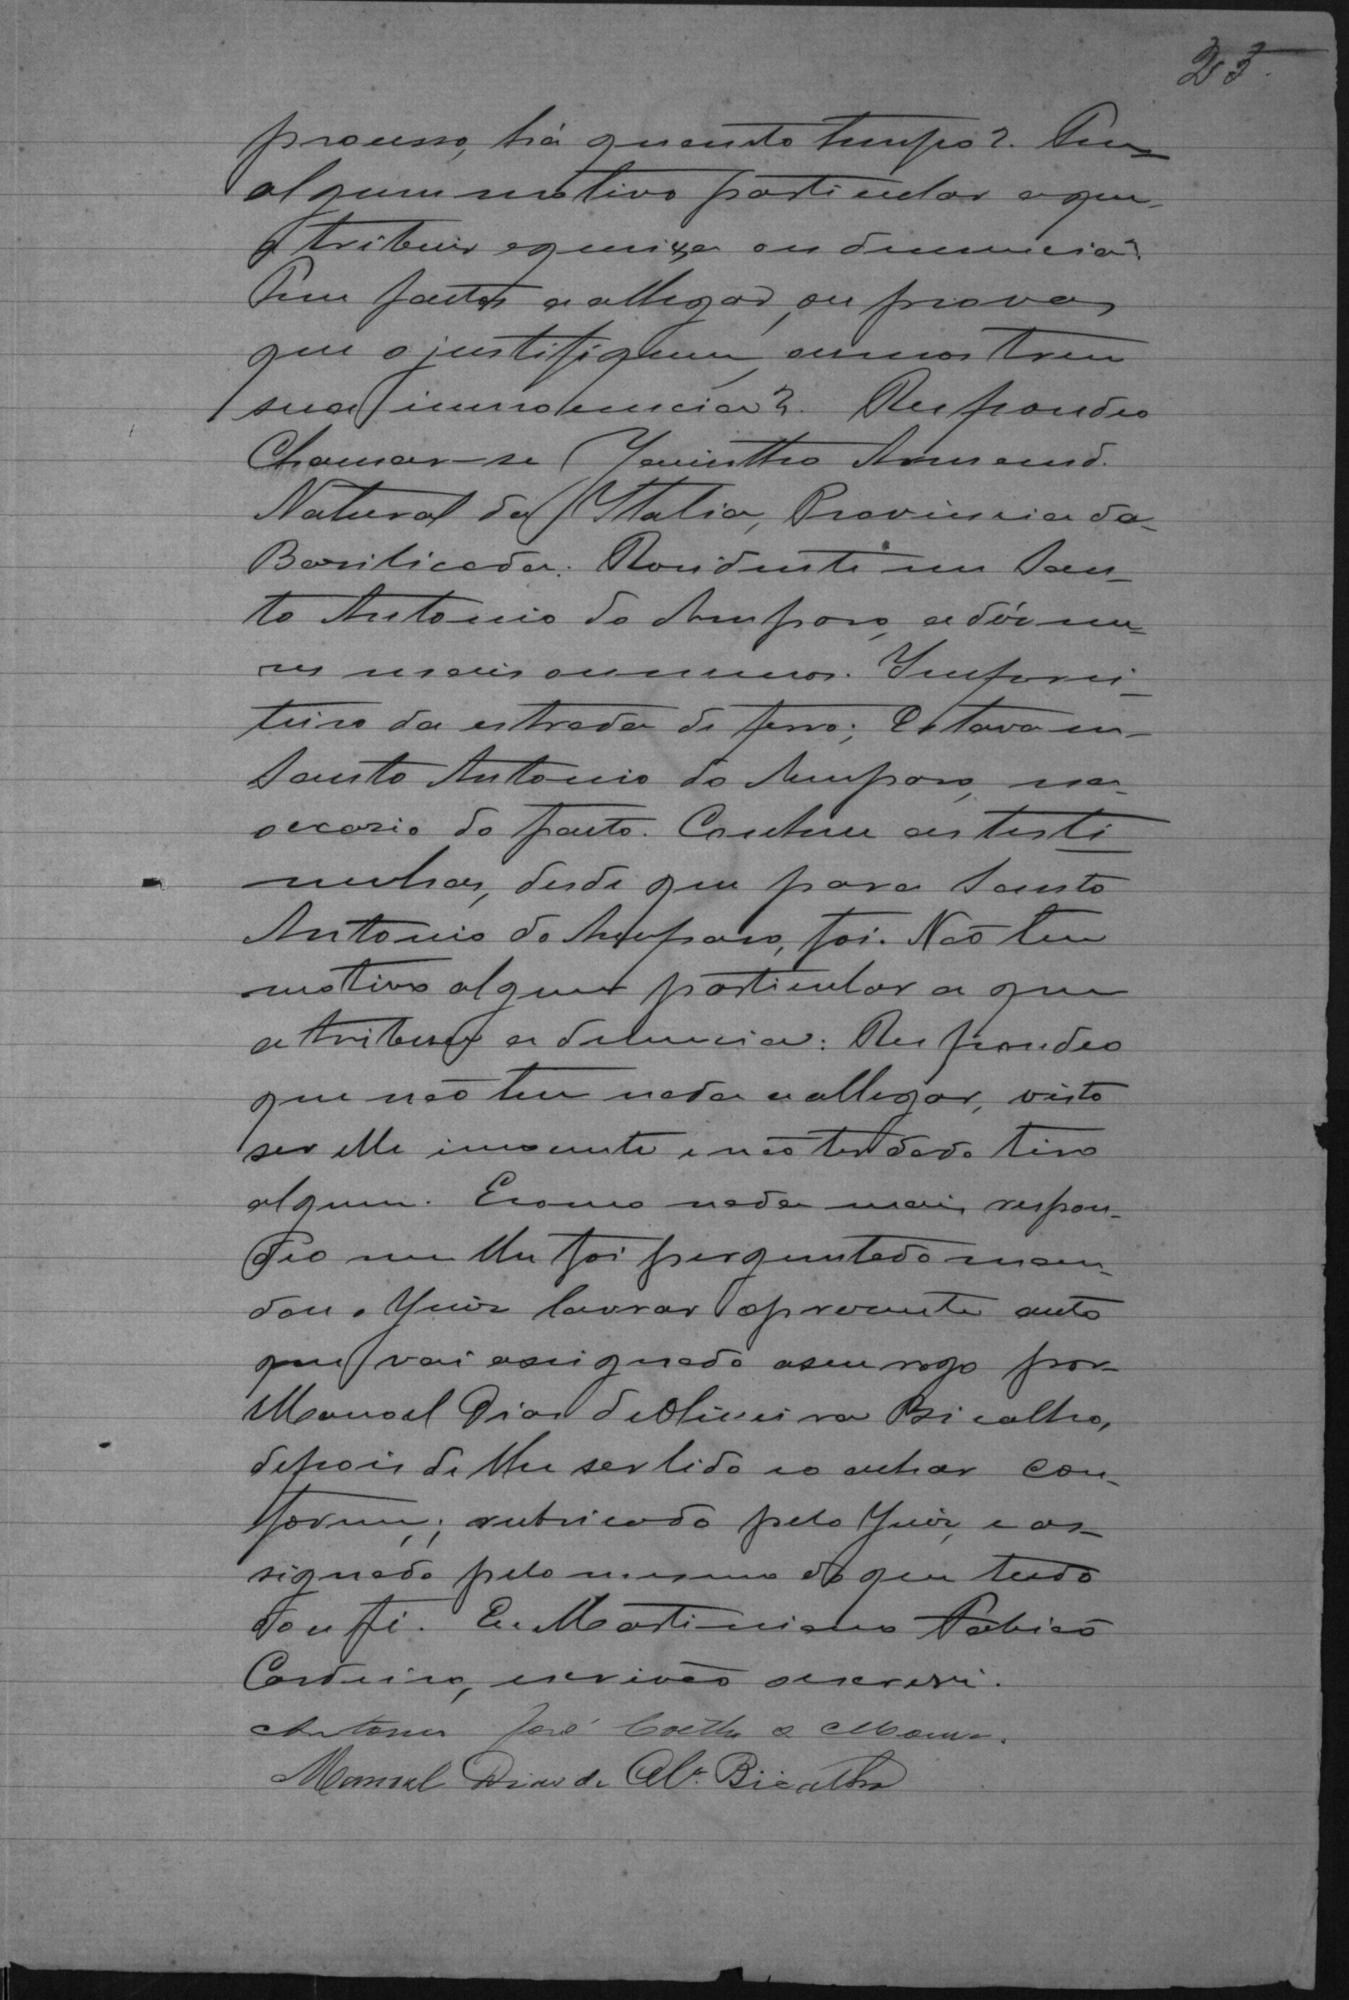 23
processo, há quanto tempo?. Tem
algum motivo particular a que
attribuir a queixa ou denuncia?
Tem factos a allegar, ou provas
que o justifiquem, ou mostrem
sua innocencia?. Respondeo
Chamar-se Jacintho
Natural da Italia, Provincia da
Basilicada. Residente em San-
to Antonio do Amparo, a dois me-
ses mais ou menos.
da estrada de ferro; Estava em
Santo Antonio do Amparo, na
occasio do facto. Conhece as teste
munhas, desde que para Santo
Antonio do Amparo, foi. Não tem
motivo algum particular a que
atribua a denuncia: Respondeo
que não tem nada a allegar, visto
ser elle inocente e não ter dado tiro
algum. E como nada mais respon-
deo nem lhe foi perguntado man-
dou o Juiz lavrar o presente auto
que vai assignado a seu rogo por
Manoel Dias de Oliveira Bicalho,
depois de lhe ser lido e o achar con-
forme; rubricado pelo Juiz, e as-
signado pelo mesmo do que tudo
dou fé. Eu Martiniano Fabião
Cordeiro, escrivão o escrevi.
Antonio José Coelho de Moura.
Manoel Dias de Olvª. Bicalho